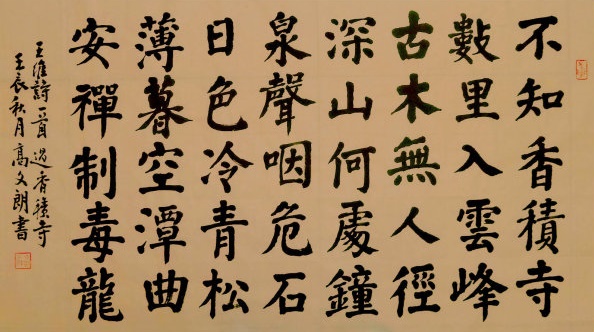 不知香積寺
數里入雲峰
古木無人徑
深山何處鐘
泉聲咽危石
日色冷青松
薄暮空潭曲
安禪制毒龍
王維詩一首過香積寺
壬辰秋月高文朗書